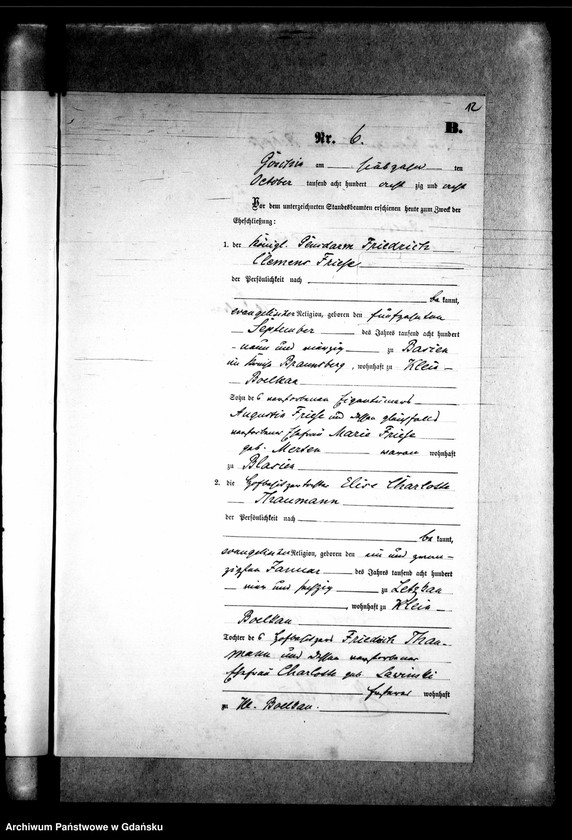 12
B.
Nr. 6.
am ten
October tausend acht hundert acht zig und acht
Vor dem unterzeichneten Standesbeamten erschienen heute zum Zweck der
Eheschließung:
1. der Königl. Gendarm Friedrich
Clemens Friese
der Persönlichkeit nach
be kannt,
evangelischer Religion, geboren den fünfzehnten
September des Jahres tausend acht hundert
neun und vierzig zu Basien
im Kreise Braunsberg, wohnhaft zu Klein-
Boelkau
Sohn des verstorbenen Eigenthümers
Augustin Friese und dessen gleichfalls
verstorbener Ehefrau Marie Friese
geb. Merten waren wohnhaft
zu
2. die Hofbesitzertochter Elise Charlotte
Thaumann
der Persönlichkeit nach
be kannt,
evangelischer Religion, geboren den ein und zwan-
zigsten Januar des Jahres tausend acht hundert
vier und sechzig zu Letzkau
, wohnhaft zu Klein-
Boelkau
Tochter des Hofbesitzers Friedrich Thau-
mann und dessen verstorbener
Ehefrau Charlotte geb. Lewinski
ersterer wohnhaft
zu Kl. Boelkau.
Archiwum Państwowe w Gdańsku